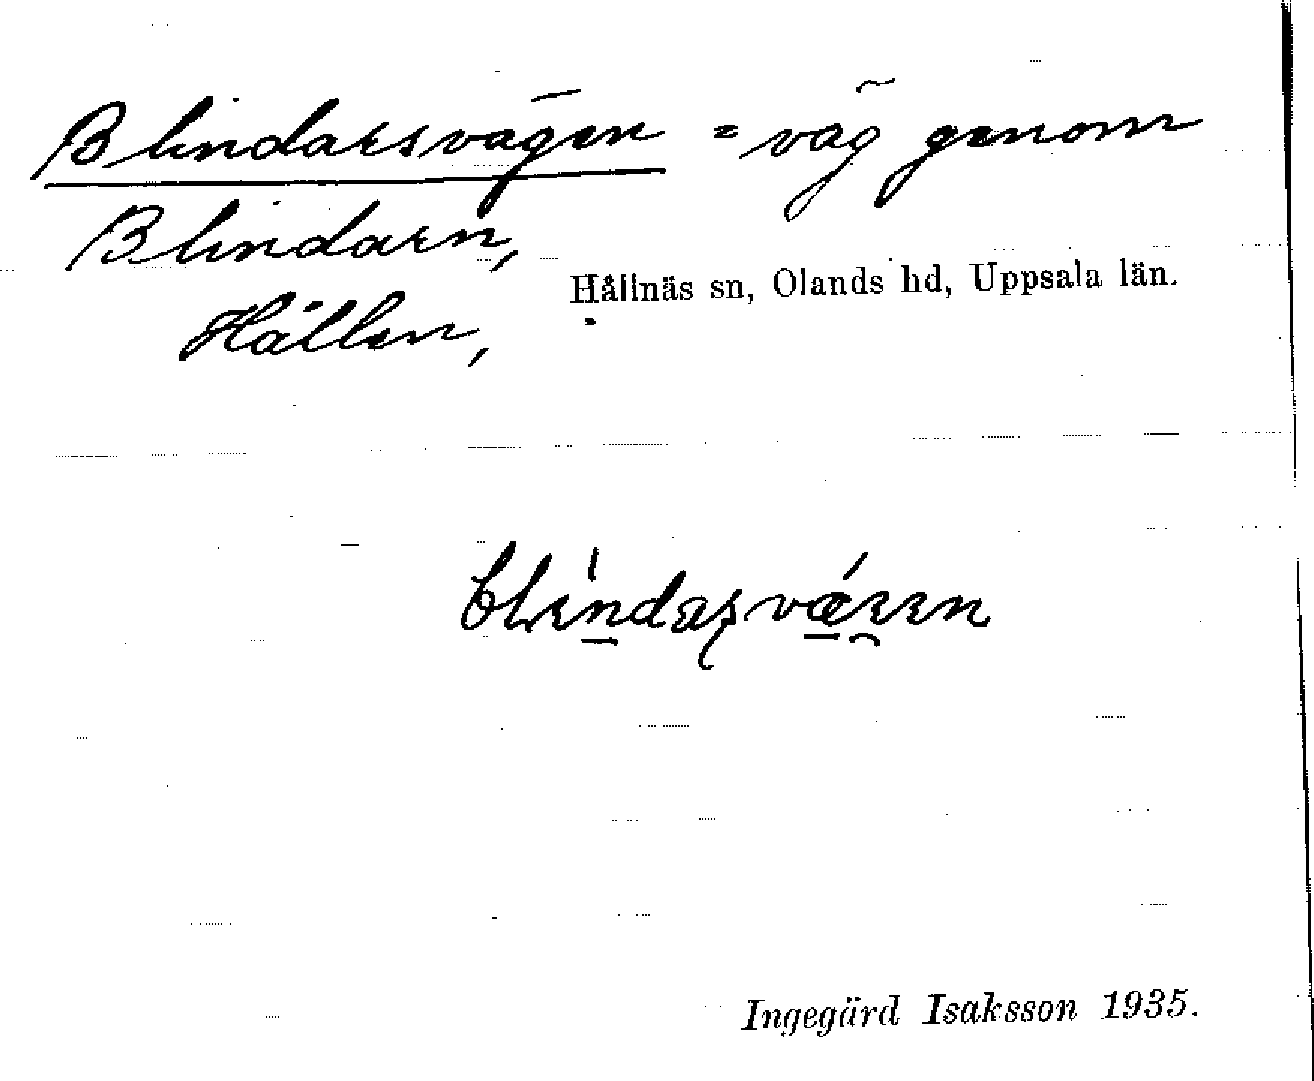 Blindarsvägen = väg genom
Blindarn,
Hållnäs sn, Olands hd, Uppsala län.
Hållen,
Ingegärd Isaksson 1935.